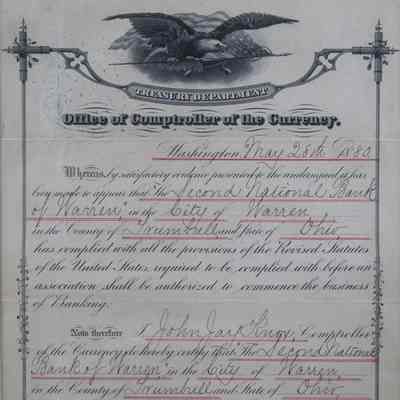 TREASURY DEPARTMENT
Office of Comptroller of the Currency.
Washington, May 28th 1880.
Whereas, by satisfactory evidence presented to the undersigned, it has
been made to appear that "The Second National Bank
of Warren" in the City of Warren
in the County of Trumbull and State of Ohio
has complied with all the provisions of the Revised Statutes
of the United States, required to be complied with before an
association shall be authorized to commence the business
of Banking:
Now therefore I John Jay Knox, Comptroller
of the Currency, do hereby certify that "The Second National
Bank of Warren" in the City of Warren
in the County of Trumbull and State of Ohio